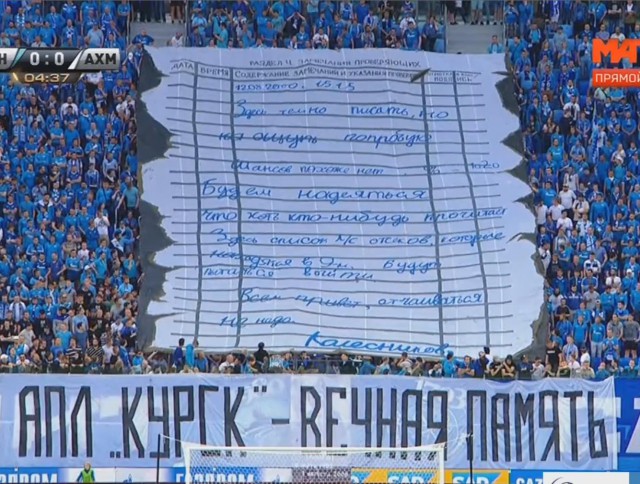 Н 0:0 АХМ
04:37
МАТ
ПРЯМОЙ
РАЗДЕЛ 4. ЗАМЕЧАНИЯ ПРОВЕРЯЮЩИХ
ДАТА ВРЕМЯ СОДЕРЖАНИЕ ЗАМЕЧАНИЙ И УКАЗАНИЯ
12.08.2000. 15.15
Здесь темно писать, но
на ощупь попробую
Шансов похоже нет. % - 10-20
Будем надеяться
что хоть кто-нибудь прочитает
Здесь список л/с отсеков, которые
находятся в 9-м. Будут
пытаться выйти
Всем привет, отчаиваться
не надо.
Колесников
АПЛ „КУРСК" - ВЕЧНАЯ ПАМЯТЬ
ГАЗПРОМ